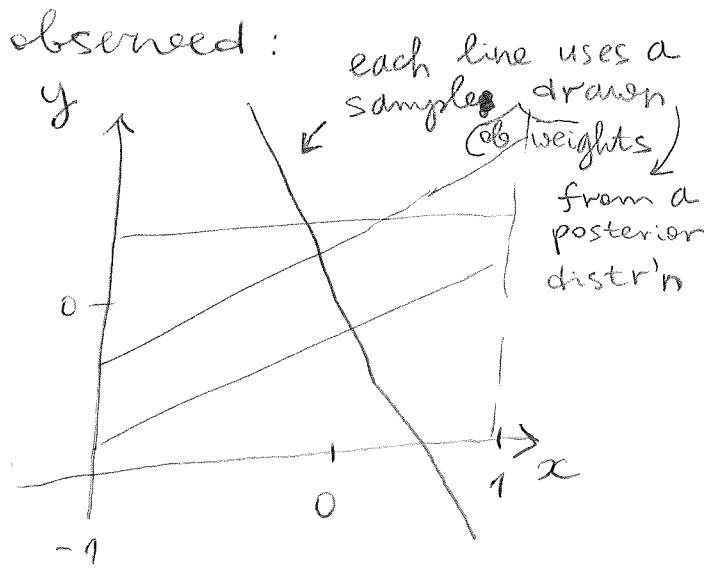 observed :
each line uses a
sample drawn
(of weights
from a
posterior
distr'n
y
0
x
0
1
-1